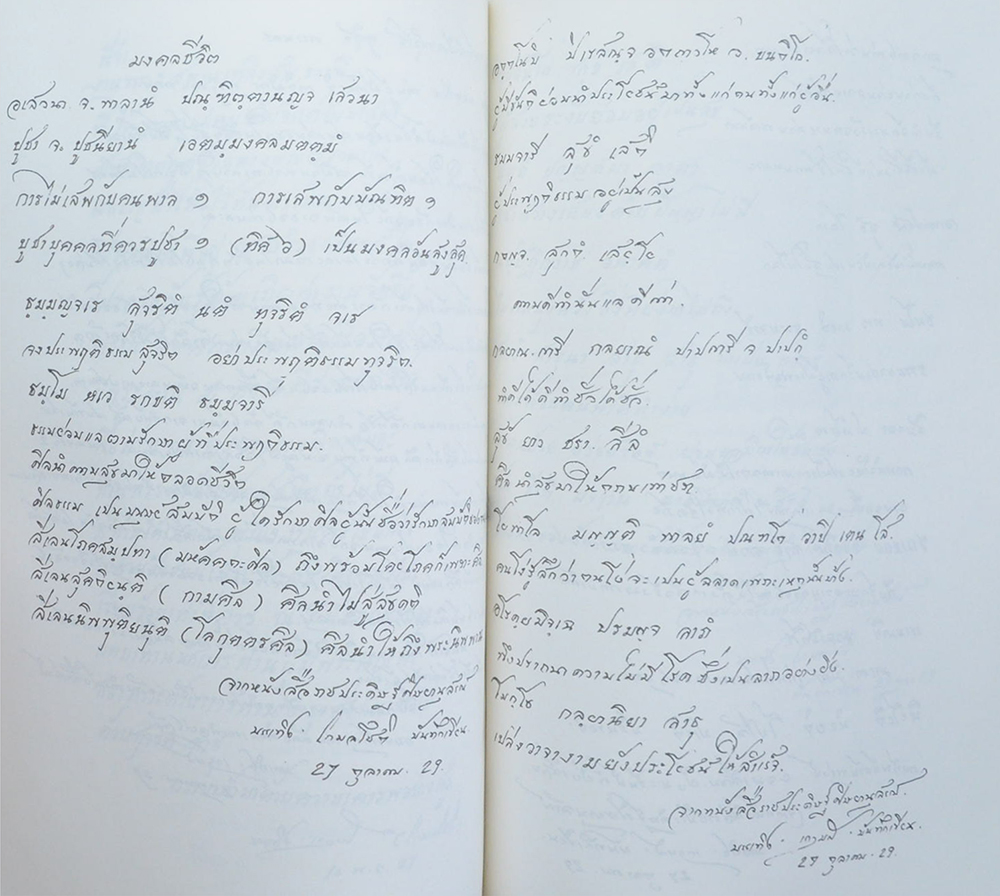 มงคลชีวิต
อเสวนา จ. พาลานํ ปณฺฑิตฺตานญฺจ เสวนา
ปูชา จ. ปูชนียานํ เอตมฺมงฺคลมุตฺตมํ
การไม่เสพกับคนพาล ๑ การเสพกับบัณฑิต ๑
บูชาบุคคลที่ควรบูชา ๑ (ทิศ ๖) เป็นมงคลอันสูงสุด
ธมฺมญฺจเร สุจริตํ นตํ ทุจริตํ จเร
จงประพฤติธรรมสุจริต อย่าประพฤติธรรมทุจริต.
ธมฺโม หเว รกขติ ธมฺมจารี
ธรรมย่อมแลตามรักษาผู้ที่ประพฤติธรรม.
ศีลนำความสุขมาให้ตลอดชีวิต
ศีลธรรม เป็นมนุษย์สมบัติ ผู้ใดรักษาศีลผู้นั้นชื่อว่ารักษาสมบัติ
สีเลนโภคสมฺปทา ( ) ถึงพร้อมโดยโภคก็เพราะศีล
สีเลนสุคติยนฺติ (กามศีล) ศีลนำไปสู่สุคติ
สีเลนนิพพุติยนฺติ (โลกุตตรศีล) ศีลนำให้ถึงพระนิพพาน
จากหนังสือราชประดิษฐ์
นายเทิง โกมลโชติ บันทึกเขียน
27 ตุลาคม. 29.
ผู้ขยันก็ย่อมนำประโยชน์มาทั้งแก่ตนทั้งแก่ผู้อื่น.
ธมฺมจารี สุขํ เสติ
ผู้ประพฤติธรรม อยู่เป็นสุข
กตญฺจ. สุกตํ เสยฺโย
ความดีทำนั่นแลดีกว่า.
กลฺยาณ. การี กลยาณํ ปาปการี จ ปาปกํ
ทำดีได้ดีทำชั่วได้ชั่ว.
สุขํ ยาว ชรา. สีลํ
ศีลนำสุขมาให้ตราบเท่าชรา.
โยพาโล มญฺญติ พาลยํ ปณฑิโต วาปิ เตน โส.
คนโง่รู้สึกว่าตนโง่จะเป็นผู้ฉลาดเพราะเหตุนั้นบ้าง.
อโรคฺยมิจฺเฉ ปรมญฺจ ลาภํ
พึงปรารถนาความไม่มีโรคซึ่งเป็นลาภอย่างยิ่ง.
โมกฺโข กลฺยานิยา สาธุ
เปล่งวาจางามยังประโยชน์ให้สำเร็จ.
จากหนังสือราชประดิษฐ์
นายเทิง. บันทึกเขียน.
27 ตุลาคม. 29.